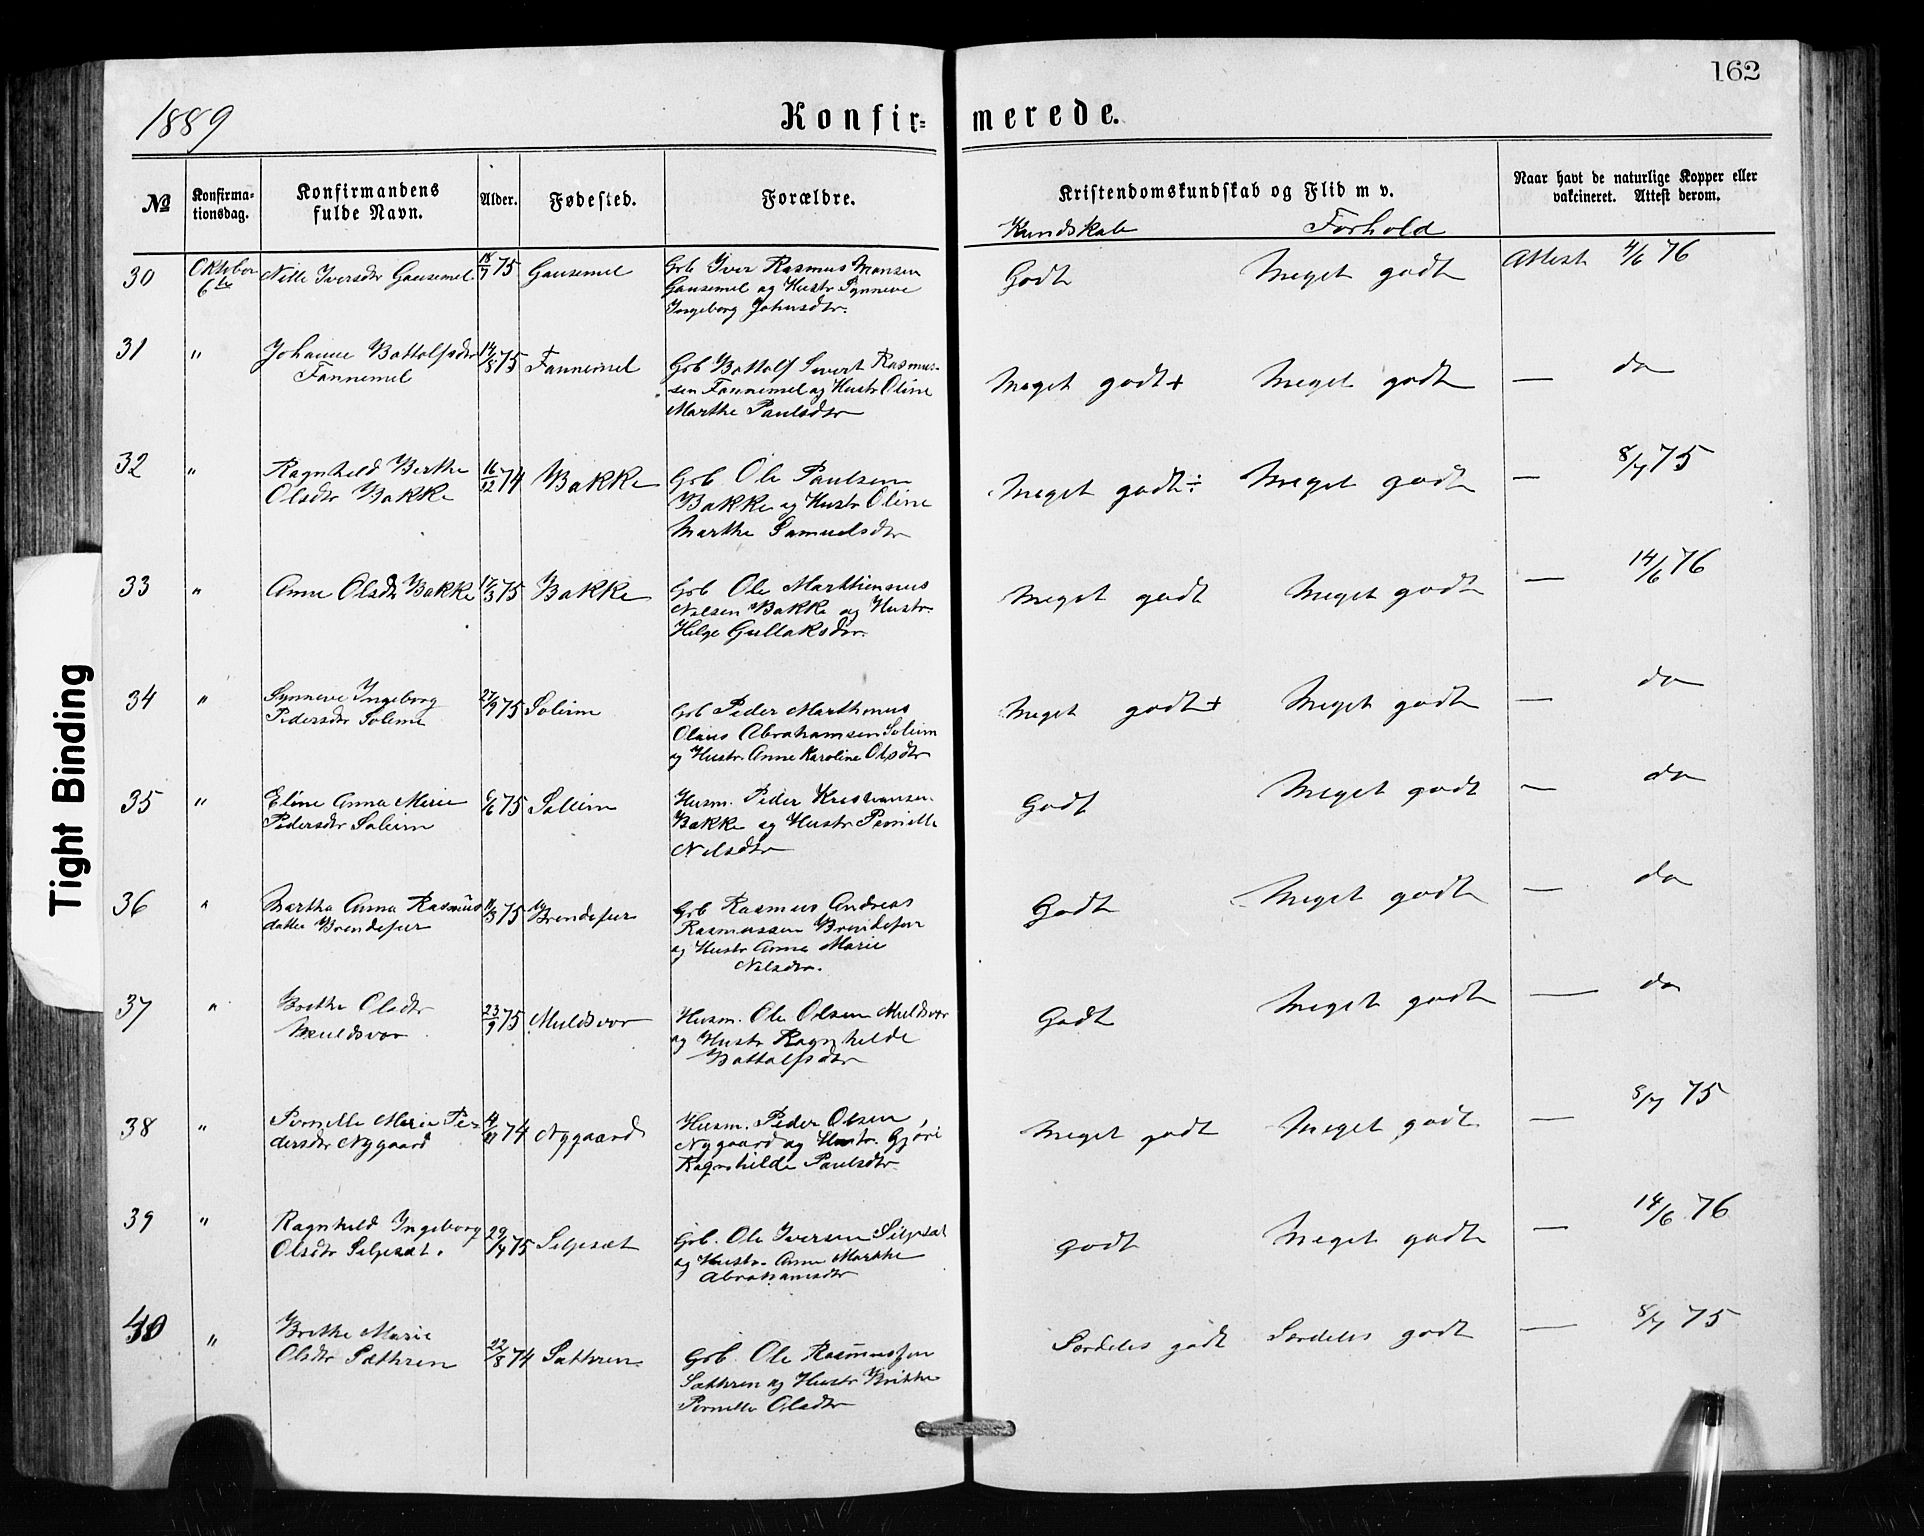 162
1889
Konfir= merede.
№
Konfirma-
tionsdag.
Konfirmandens
fulde Navn.
Alder.
Fødested.
Forældre.
Kristendomskundskab og Flid m v.
Kundskab
Forhold
Naar havt de naturlige Kopper eller
vakcineret. Attest derom.
30 Oktober Nille Iversdtr Gausemel 75 Gausemel Grb Iver Rasmus Monsen Godt Meget godt Attest 4/6 76
6te Gausemel og Hustr Synneve
Ingeborg Johnsdtr.
31 " Johanne Bottolfsdtr 14/8 75 Fannemel Grb Bottolf Sivert Rasmus- Meget godt + Meget godt — do
Fannemel sen Fannemel og Hustr Oline
Marthe Paulsdtr
32 " Ragnhild Berthe 16/12 74 Bakke Grb Ole Paulsen Meget godt ÷ Meget godt — 8/7 75
Olsdtr Bakke Bakke og Hustr Oline
Marthe Samuelsdtr
33 " Anne Olsdtr Bakke 17/3 75 Bakke Grb Ole Marthiennus Meget godt Meget godt — 14/6 76
Nilsen Bakke og Hustr.
Helge Gullaksdtr.
34 " Synneve Ingeborg 27/9 75 Soleim Grb Peder Marthinus Meget godt + Meget godt — do
Pedersdtr Soleim Olaus Abrahamsen Soleim
og Hustr. Anne Karoline Olsdtr
35 " Eline Anna Marie 6/6 75 Soleim Husm. Peder Kristiansen Godt Meget godt — do
Pedersdtr Soleim Bakke og Hustr Pernille
Nilsdtr
36 " Martha Anna Rasmus 11/3 75 Brendefur Grb Rasmus Andreas Godt Meget godt — do
datter Brendefur Rasmussen Brendefur
og Hustr Anna Marie
Nilsdtr.
37 " Brithe Olsdtr 23/9 75 Muldsvor Husm. Ole Olsen Muldsvor Godt Meget godt — do
Muldsvor og Hustr Ragnhilde
Bottolfsdtr
38 " Pernille Marie Pe- 74 Nygaard Husm. Peder Olsen Meget godt Meget godt — 8/7 75
dersdtr Nygaard Nygaard og Hustr. Gjøri
Ragnhilde Paulsdtr
39 " Ragnhild Ingeborg 29/4 75 Seljeset Grb. Ole Iversen Seljeset godt Meget godt — 14/6 76
Olsdtr Seljeset. og Hustr. Anne Marthe
Abrahamsdtr
40 " Brithe Marie 22/8 74 Sæthren Grb. Ole Rasmussen Særdeles godt Særdeles godt — 8/7 75
Olsdtr Sæthren Sæthren og Hustr Brithe
Pernille Olsdtr
Tight Binding